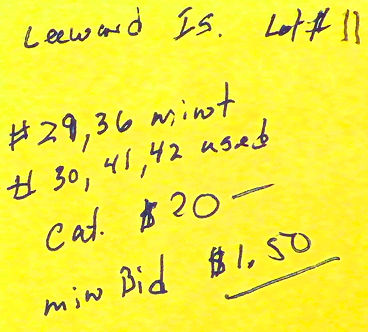 Leeward Is. Lot # 11
# 29, 36 mint
# 30, 41, 42 used
Cat. $20—
min Bid $1.50